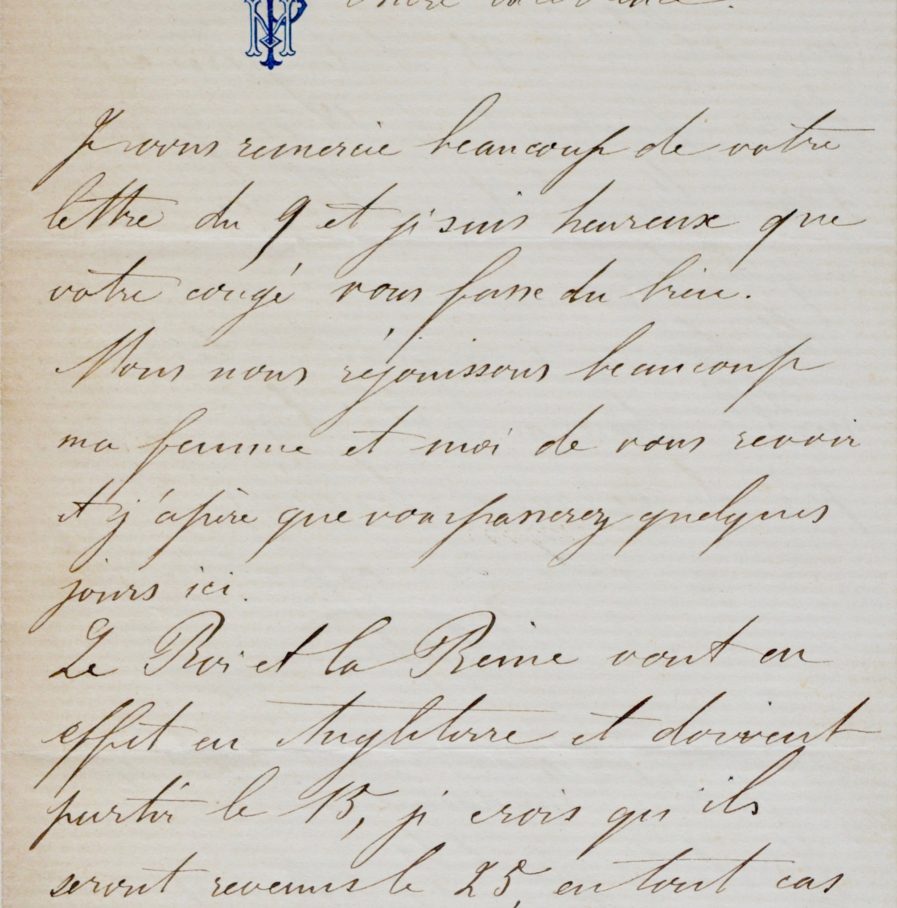 Je vous remercie beaucoup de votre
lettre du 9 et je suis heureux que
votre congé vous fasse du bien.
Nous nous réjouissons beaucoup
ma femme et moi de vous revoir
et j'espère que vous passerez quelques
jours ici.
Le Roi et la Reine vont en
effet en Angleterre et doivent
partir le 15, je crois qu'ils
seront revenus le 25, en tout cas